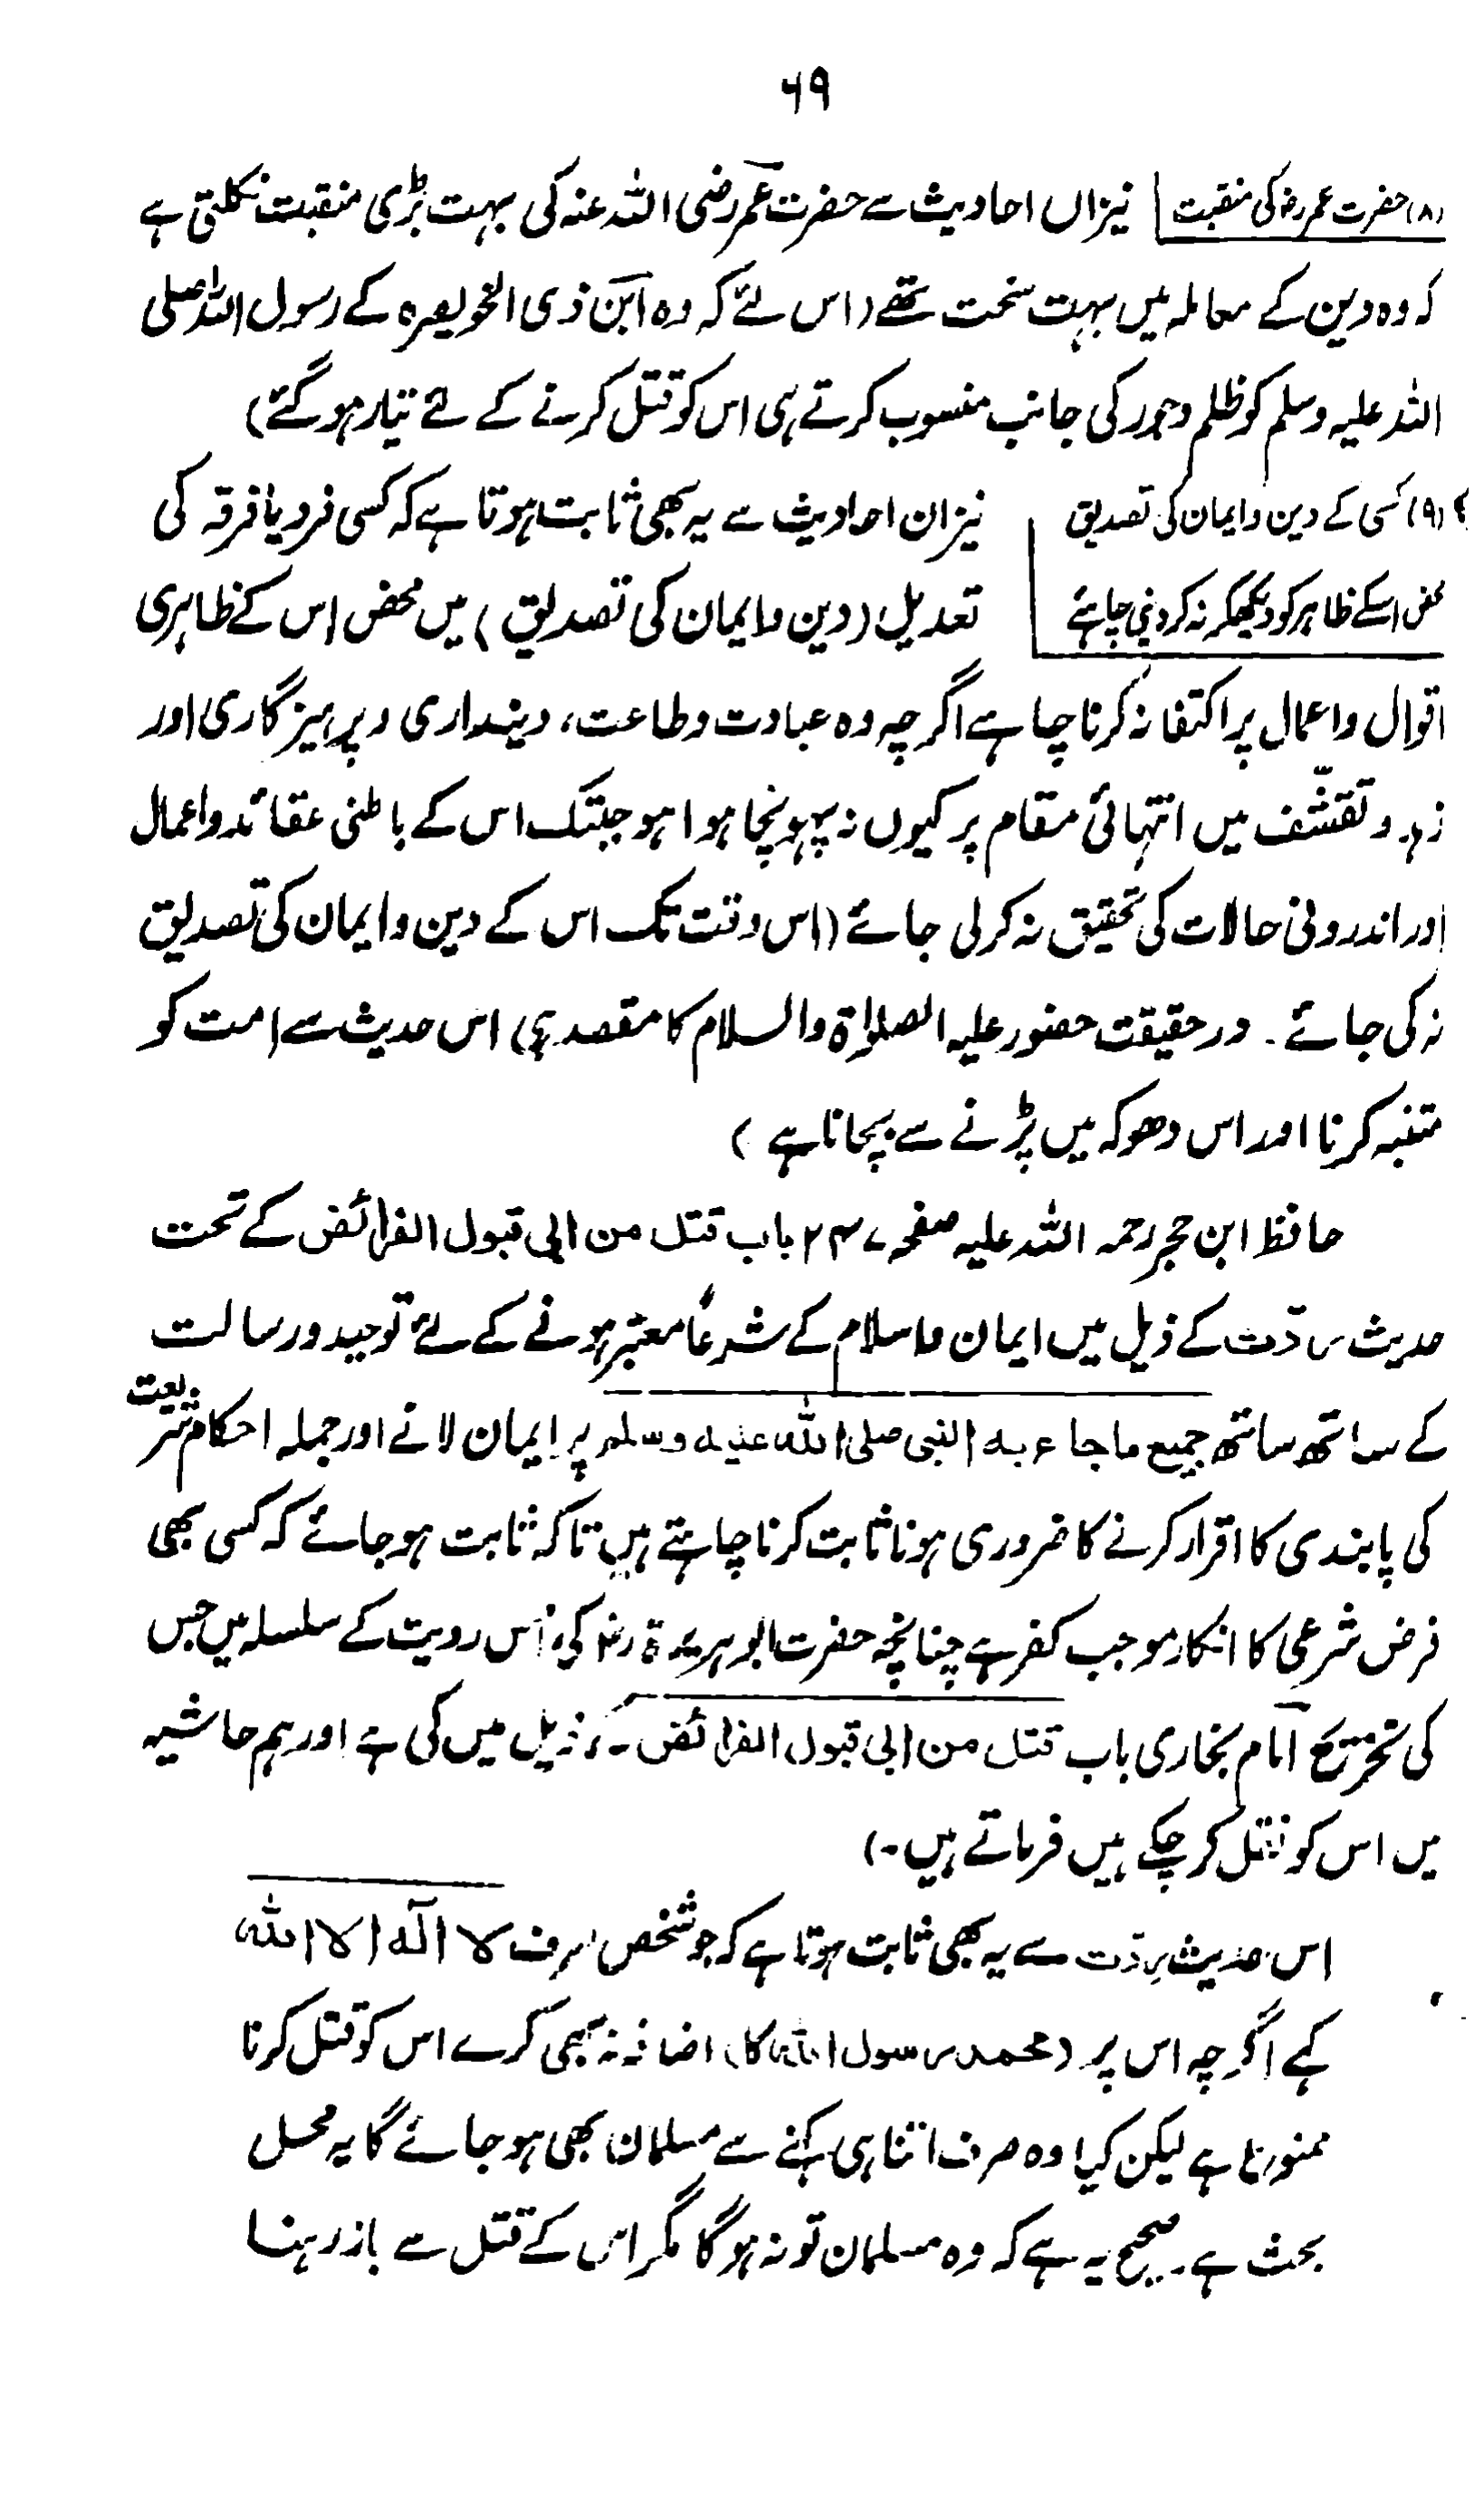 ۶۹
(۸) حضرت عمر رضہ کی منقبت نیزاں احادیث سے حضرت عمر رضی اللہ عنہ کی بہت بڑی منقبت نکلتی ہے
کہ وہ دین کے معاملہ میں بہت سخت تھے (اس لئے کہ وہ ابن ذی الخویصرہ کے رسول اللہ صلی
اللہ علیہ وسلم کو ظلم وجور کی جانب منسوب کرتے ہی اس کو قتل کرنے کے لئے تیار ہو گئے)
(۹) کسی کے دین وایمان کی تصدیق نیزان احادیث سے یہ بھی ثابت ہوتا ہے کہ کسی فرد یا فرقہ کی
محض اسکے ظاہر کو دیکھکر نہ کردینی چاہئے تعدیل (دین وایمان کی تصدیق) میں محض اس کے ظاہری
اقوال واعمال پر اکتفا نہ کرنا چاہے اگرچہ وہ عبادت وطاعت، دینداری وپرہیزگاری اور
زہد وتقشّف میں انتہائی مقام پر کیوں نہ پہونچا ہوا ہو جبتک اس کے باطنی عقائد واعمال
اور اندرونی حالات کی تحقیق نہ کرلی جائے (اس وقت تک اس کے دین وایمان کی تصدیق
نہ کی جائے۔ درحقیقت حضور علیہ الصلواۃ والسلام کا مقصد ہی اس حدیث سے امت کو
متنبہ کرنا اور اس دھوکہ میں پڑنے سے بچانا ہے)
حافظ ابن حجر رحمہ اللہ علیہ صفحہ ۲۴۷ باب قتل من ابی قبول الفرائض کے تحت
حدیث ردّت کے ذیل میں ایمان واسلام کے شرعاً معتبر ہونے کے لئے توحید ورسالت
کے ساتھ ساتھ جمیع ماجاء بہ النبی صلی اللہ علیہ وسلم پر ایمان لانے اور جملہ احکام شریعت
کی پابندی کا اقرار کرنے کا ضروری ہونا ثابت کرنا چاہتے ہیں تاکہ ثابت ہو جائے کہ کسی بھی
فرض شرعی کا انکار موجب کفر ہے چنانچہ حضرت ابوہریرۃ رضہ کی اس روایت کے سلسلہ میں جس
کی تخریج امام بخاری باب قتل من ابی قبول الفرائض کے ذیل میں کی ہے اور ہم حاشیہ
میں اس کو نقل کر چکے ہیں فرماتے ہیں۔)
اس حدیث ردّت سے یہ بھی ثابت ہوتا ہے کہ جو شخص صرف لا الہ الا اللہ
کہے اگرچہ اس پر (محمد رسول اللہ کا) اضافہ نہ بھی کرے اس کو قتل کرنا
ممنوع ہے لیکن کیا وہ صرف اتنا ہی کہنے سے مسلمان بھی ہو جائے گا یہ محل
بحث ہے۔ صحیح یہ ہے کہ وہ مسلمان تو نہ ہوگا مگر اس کے قتل سے باز رہنا